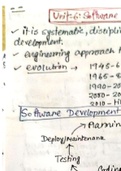 Unit-6: Software
✓ it is systematic, discipli
development.
✓ engineering approach t
✓ evolution → 1945-6
1965-8
1990-20
2000-20
2010-
Software Development
Plannin
Deploy/maintenance
Testing
Coding